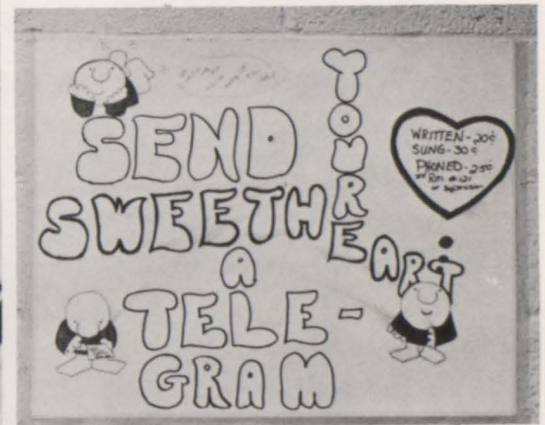 SEND
YOUR
SWEETHEART
A
TELE-
GRAM
WRITTEN-20¢
SUNG-30¢
PHONED-25¢
Rm.